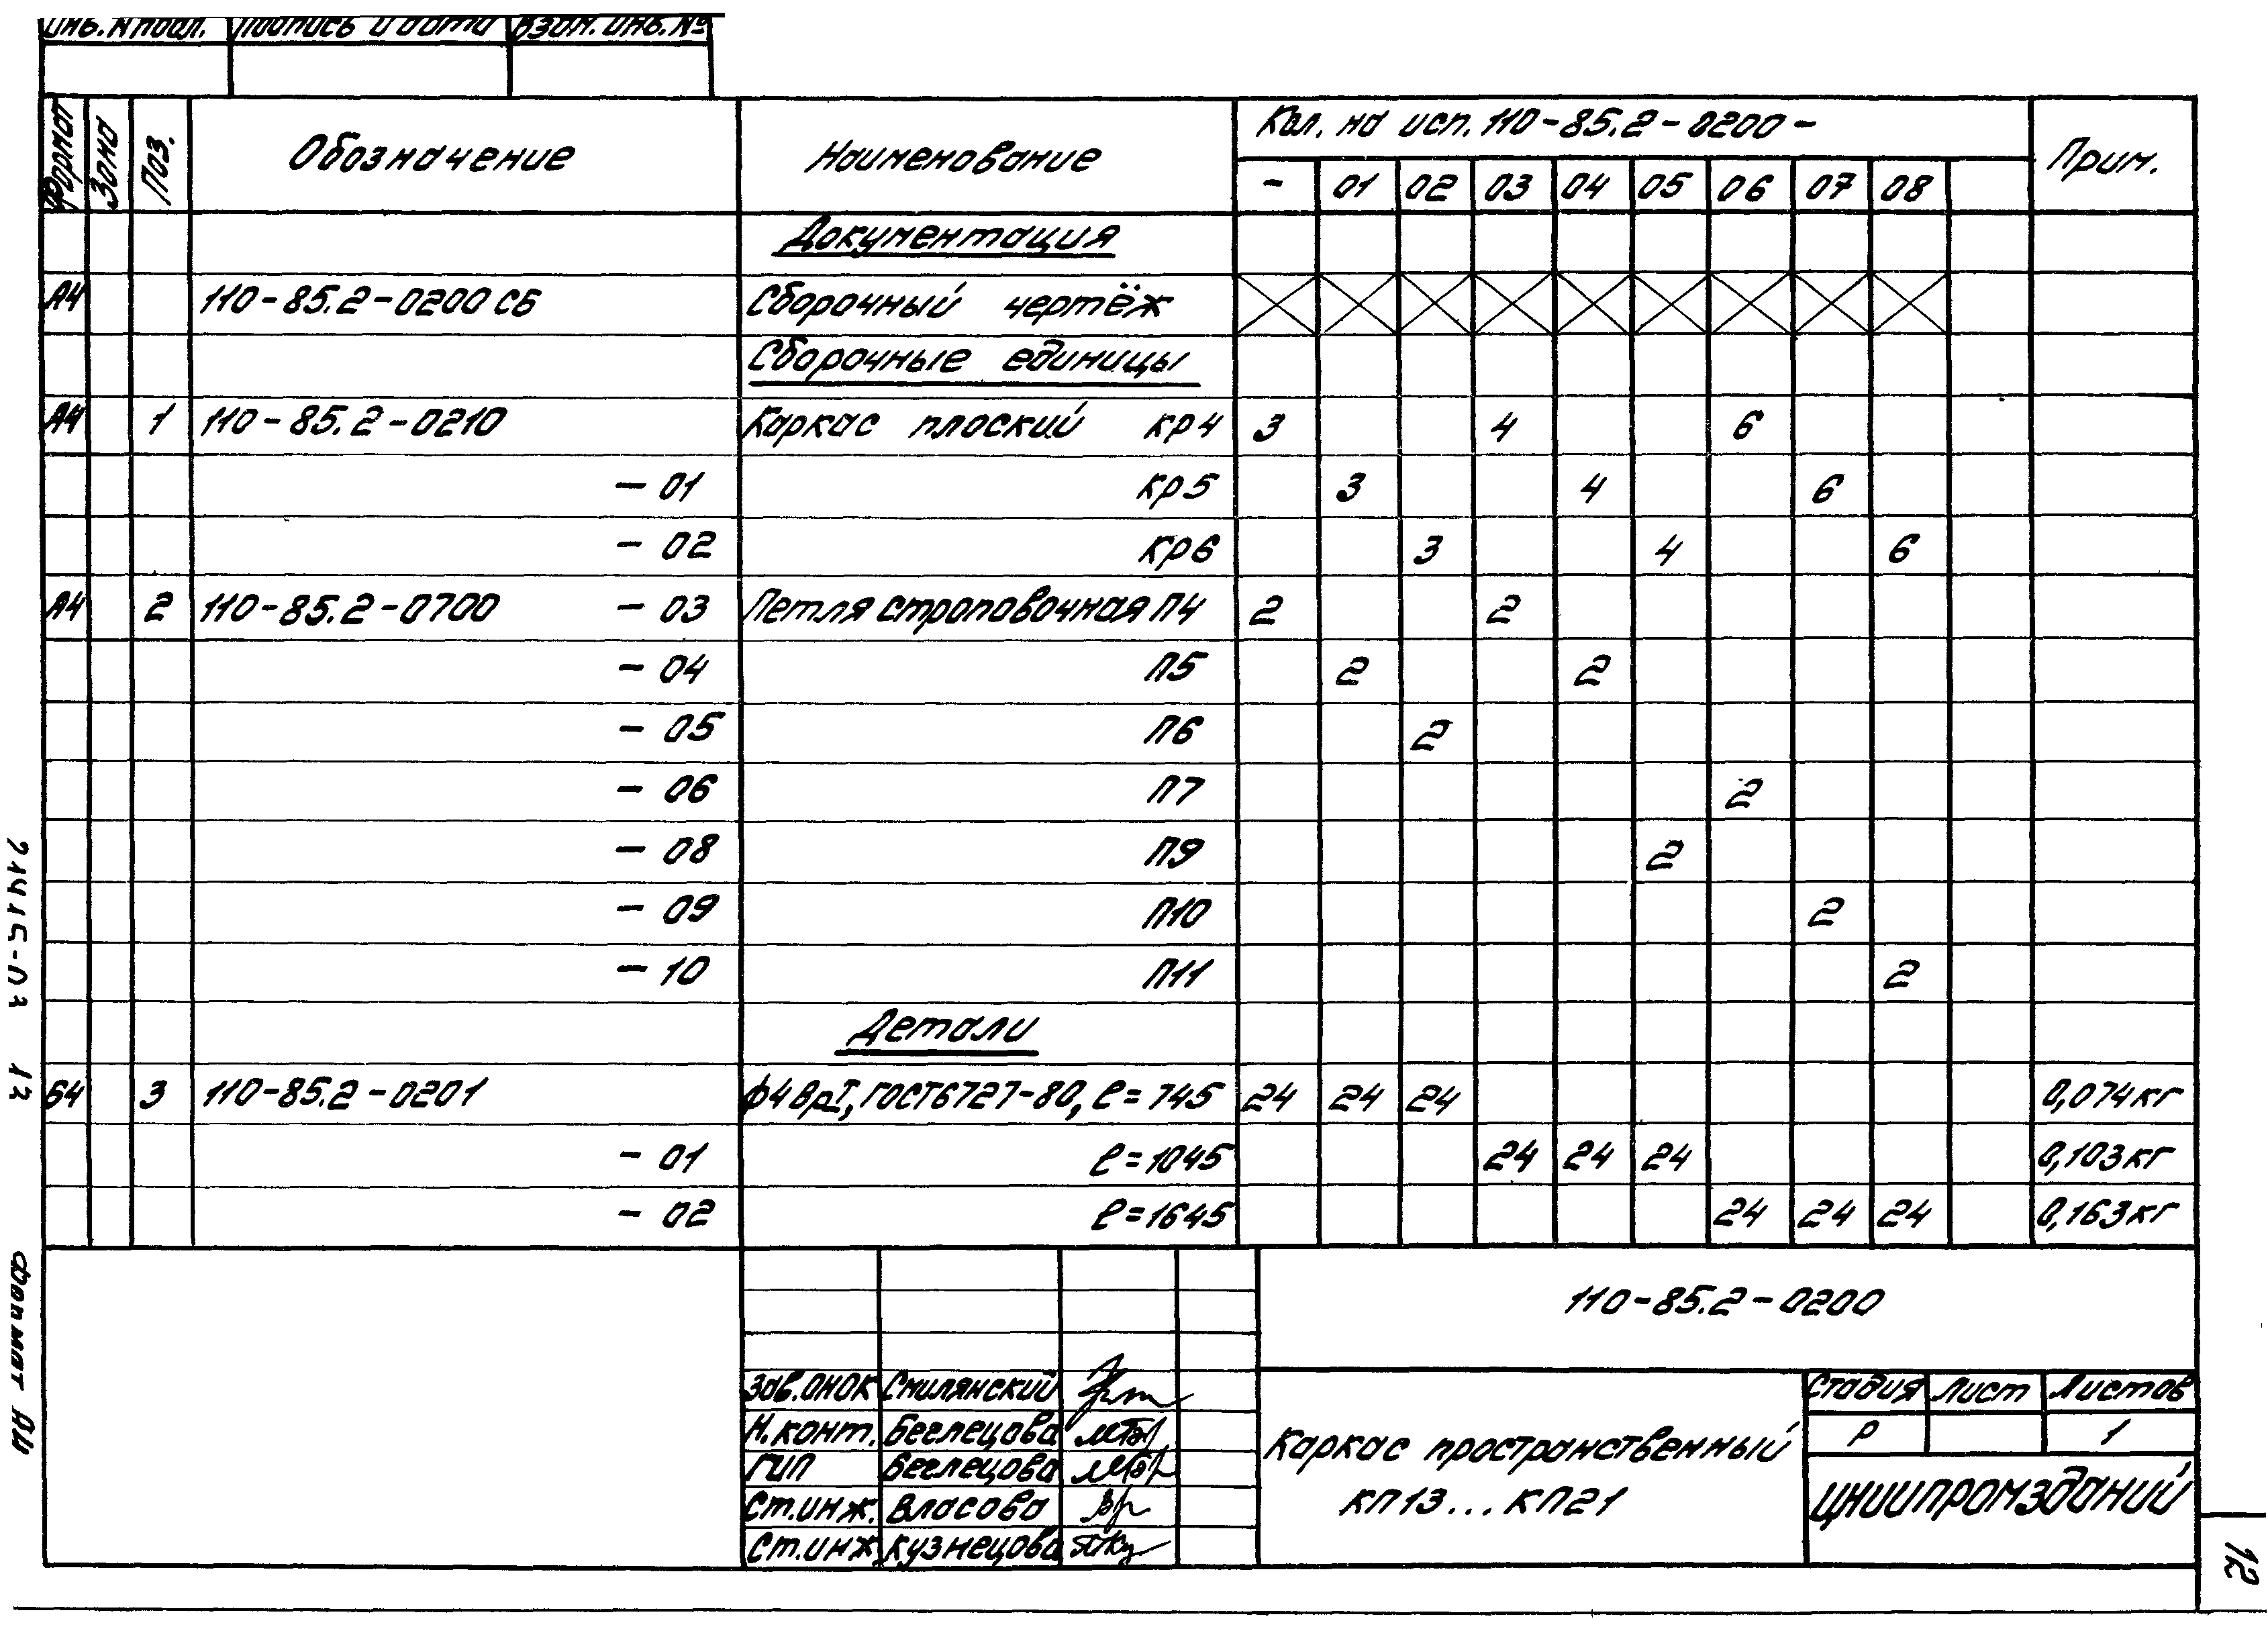 Инв. № подл. Подпись и дата Взам. инв. №
Формат Зона Поз. Обозначение Наименование Кол. на исп. 110-85.2-0200- Прим.
- 01 02 03 04 05 06 07 08
Документация
А4 110-85.2-0200 СБ Сборочный чертёж
Сборочные единицы
А4 1 110-85.2-0210 Каркас плоский КР4 3 4 6
- 01 КР5 3 4 6
- 02 КР6 3 4 6
А4 2 110-85.2-0700 - 03 Петля строповочная П4 2 2
- 04 П5 2 2
- 05 П6 2
- 06 П7 2
- 08 П9 2
- 09 П10 2
- 10 П11 2
Детали
Б4 3 110-85.2-0201 ф4ВрI, ГОСТ6727-80, ℓ=745 24 24 24 0,074кг
- 01 ℓ=1045 24 24 24 0,103кг
- 02 ℓ=1645 24 24 24 0,163кг
110-85.2-0200
Зав.ОНОК Смилянский
Н.конт. Беглецова
ГИП Беглецова
Ст.инж. Власова
Ст.инж Кузнецова
Каркас пространственный
КП13...КП21
Стадия Лист Листов
Р 1
ЦНИИПРОМЗДАНИЙ
12
21415-03 12
Формат А4